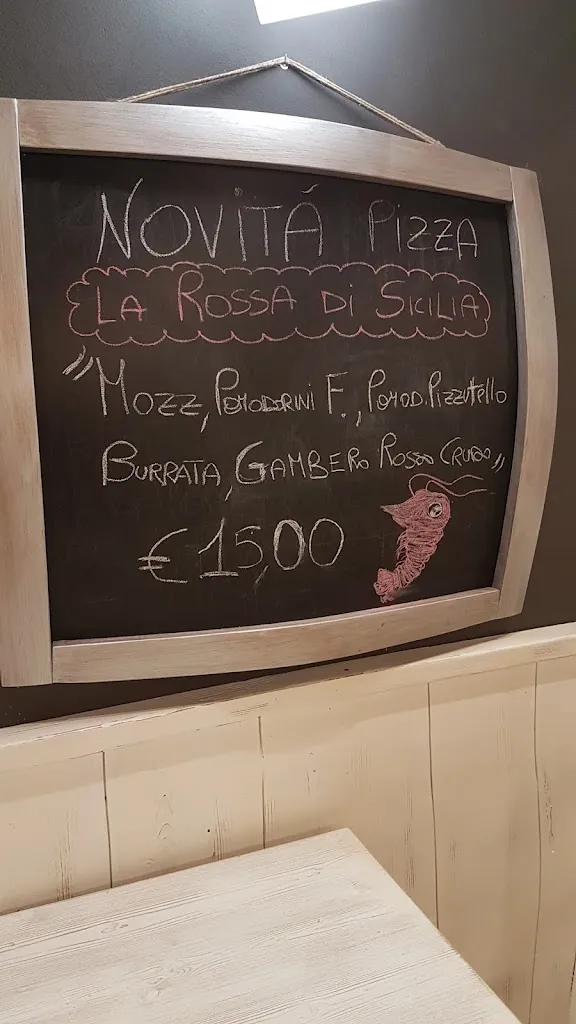 NOVITÁ PIZZA
LA ROSSA DI SICILIA
"MOZZ, POMODORINI F., POMOD. PIZZUTELLO
BURRATA, GAMBERO ROSSO CRUDO"
€ 15,00